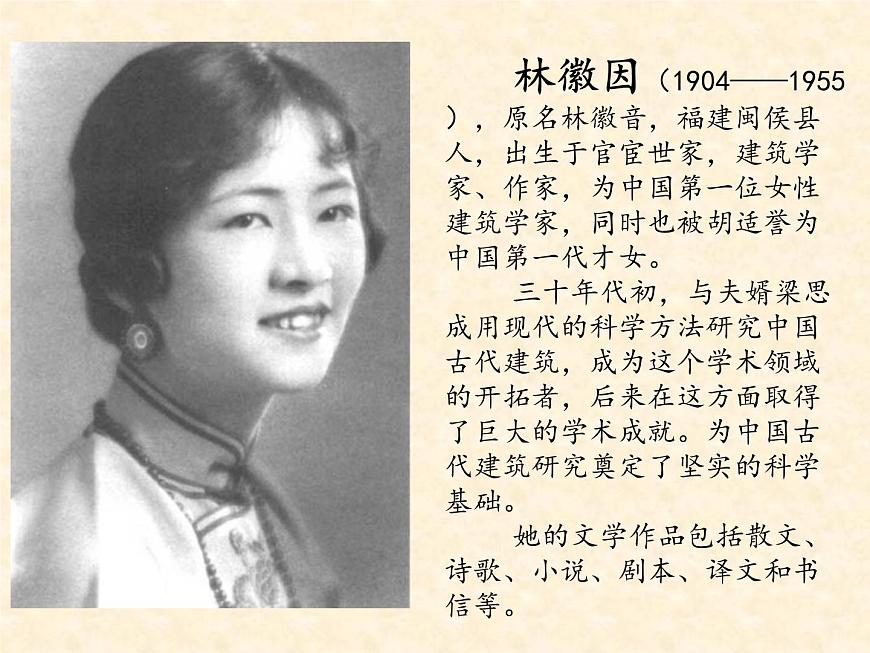 林徽因（1904——1955
），原名林徽音，福建闽侯县
人，出生于官宦世家，建筑学
家、作家，为中国第一位女性
建筑学家，同时也被胡适誉为
中国第一代才女。
三十年代初，与夫婿梁思
成用现代的科学方法研究中国
古代建筑，成为这个学术领域
的开拓者，后来在这方面取得
了巨大的学术成就。为中国古
代建筑研究奠定了坚实的科学
基础。
她的文学作品包括散文、
诗歌、小说、剧本、译文和书
信等。